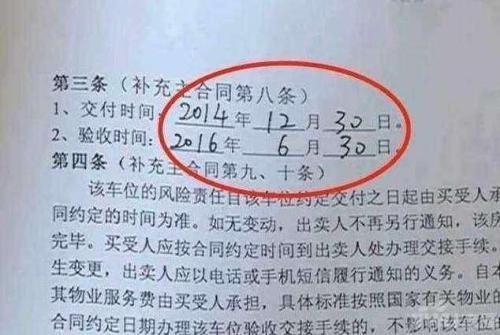 第三条（补充主合同第八条）
1、交付时间：2014年 12 月 30 日。
2、验收时间：2016年 6 月 30 日。
第四条（补充主合同第九、十条）
该车位的风险责任自该车位约定交付之日起由买受人承
同约定的时间为准。如无变动，出卖人不再另行通知，该房
完毕。买受人应按合同约定时间到出卖人处办理交接手续。
生变更，出卖人应以电话或手机短信履行通知的义务。自本
其物业服务费由买受人承担，具体标准按照国家有关物业的
合同约定日期办理该车位验收交接手续的，不影响该车位